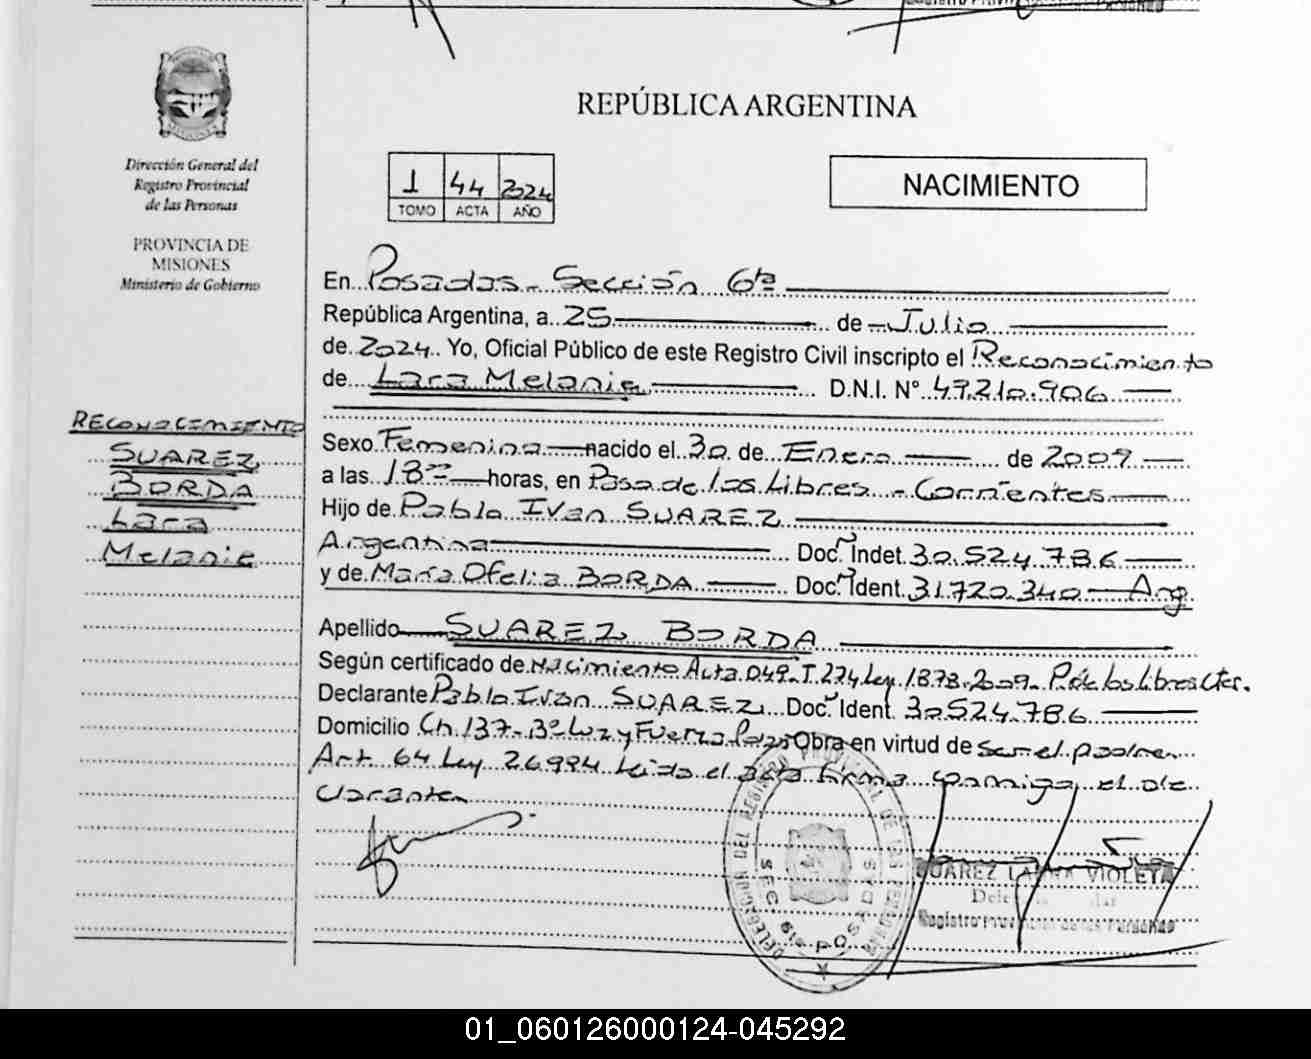 REPÚBLICA ARGENTINA
Dirección General del
Registro Provincial
de las Personas
PROVINCIA DE
MISIONES
Ministerio de Gobierno
1 44 2024
TOMO ACTA AÑO
NACIMIENTO
En Posadas - Sección 6ta
República Argentina, a 25 de Julio
de 2024 Yo, Oficial Público de este Registro Civil inscripto el Reconocimiento
de Lara Melanie D.N.I. N° 49.210.906
RECONOCIMIENTO
SUAREZ
BORDA
Lara
Melanie
Sexo Femenino nacido el 30 de Enero de 2009
a las 18 horas, en Paso de los Libres - Corrientes
Hijo de Pablo Ivan SUAREZ
Argentina Doc. Indet. 30.524.786
y de María Ofelia BORDA Doc. Ident. 31.720.340 - Arg
Apellido SUAREZ BORDA
Según certificado de Nacimiento Acta 049 - T. 274 Ley 1878-2009 P. de los Libres Ctes.
Declarante Pablo Ivan SUAREZ Doc. Ident. 30524.786
Domicilio Ch. 137 - B° Luz y Fuerza Obra en virtud de ser el padre
Art. 64 Ley 26994 Leido el acta firma conmigo el de
clarante
DELEGACION DEL REGISTRO PROVINCIAL DE LAS PERSONAS
SEC. 6ta POSADAS
SUAREZ VIOLETA
Registro Provincial de las Personas
01_060126000124-045292